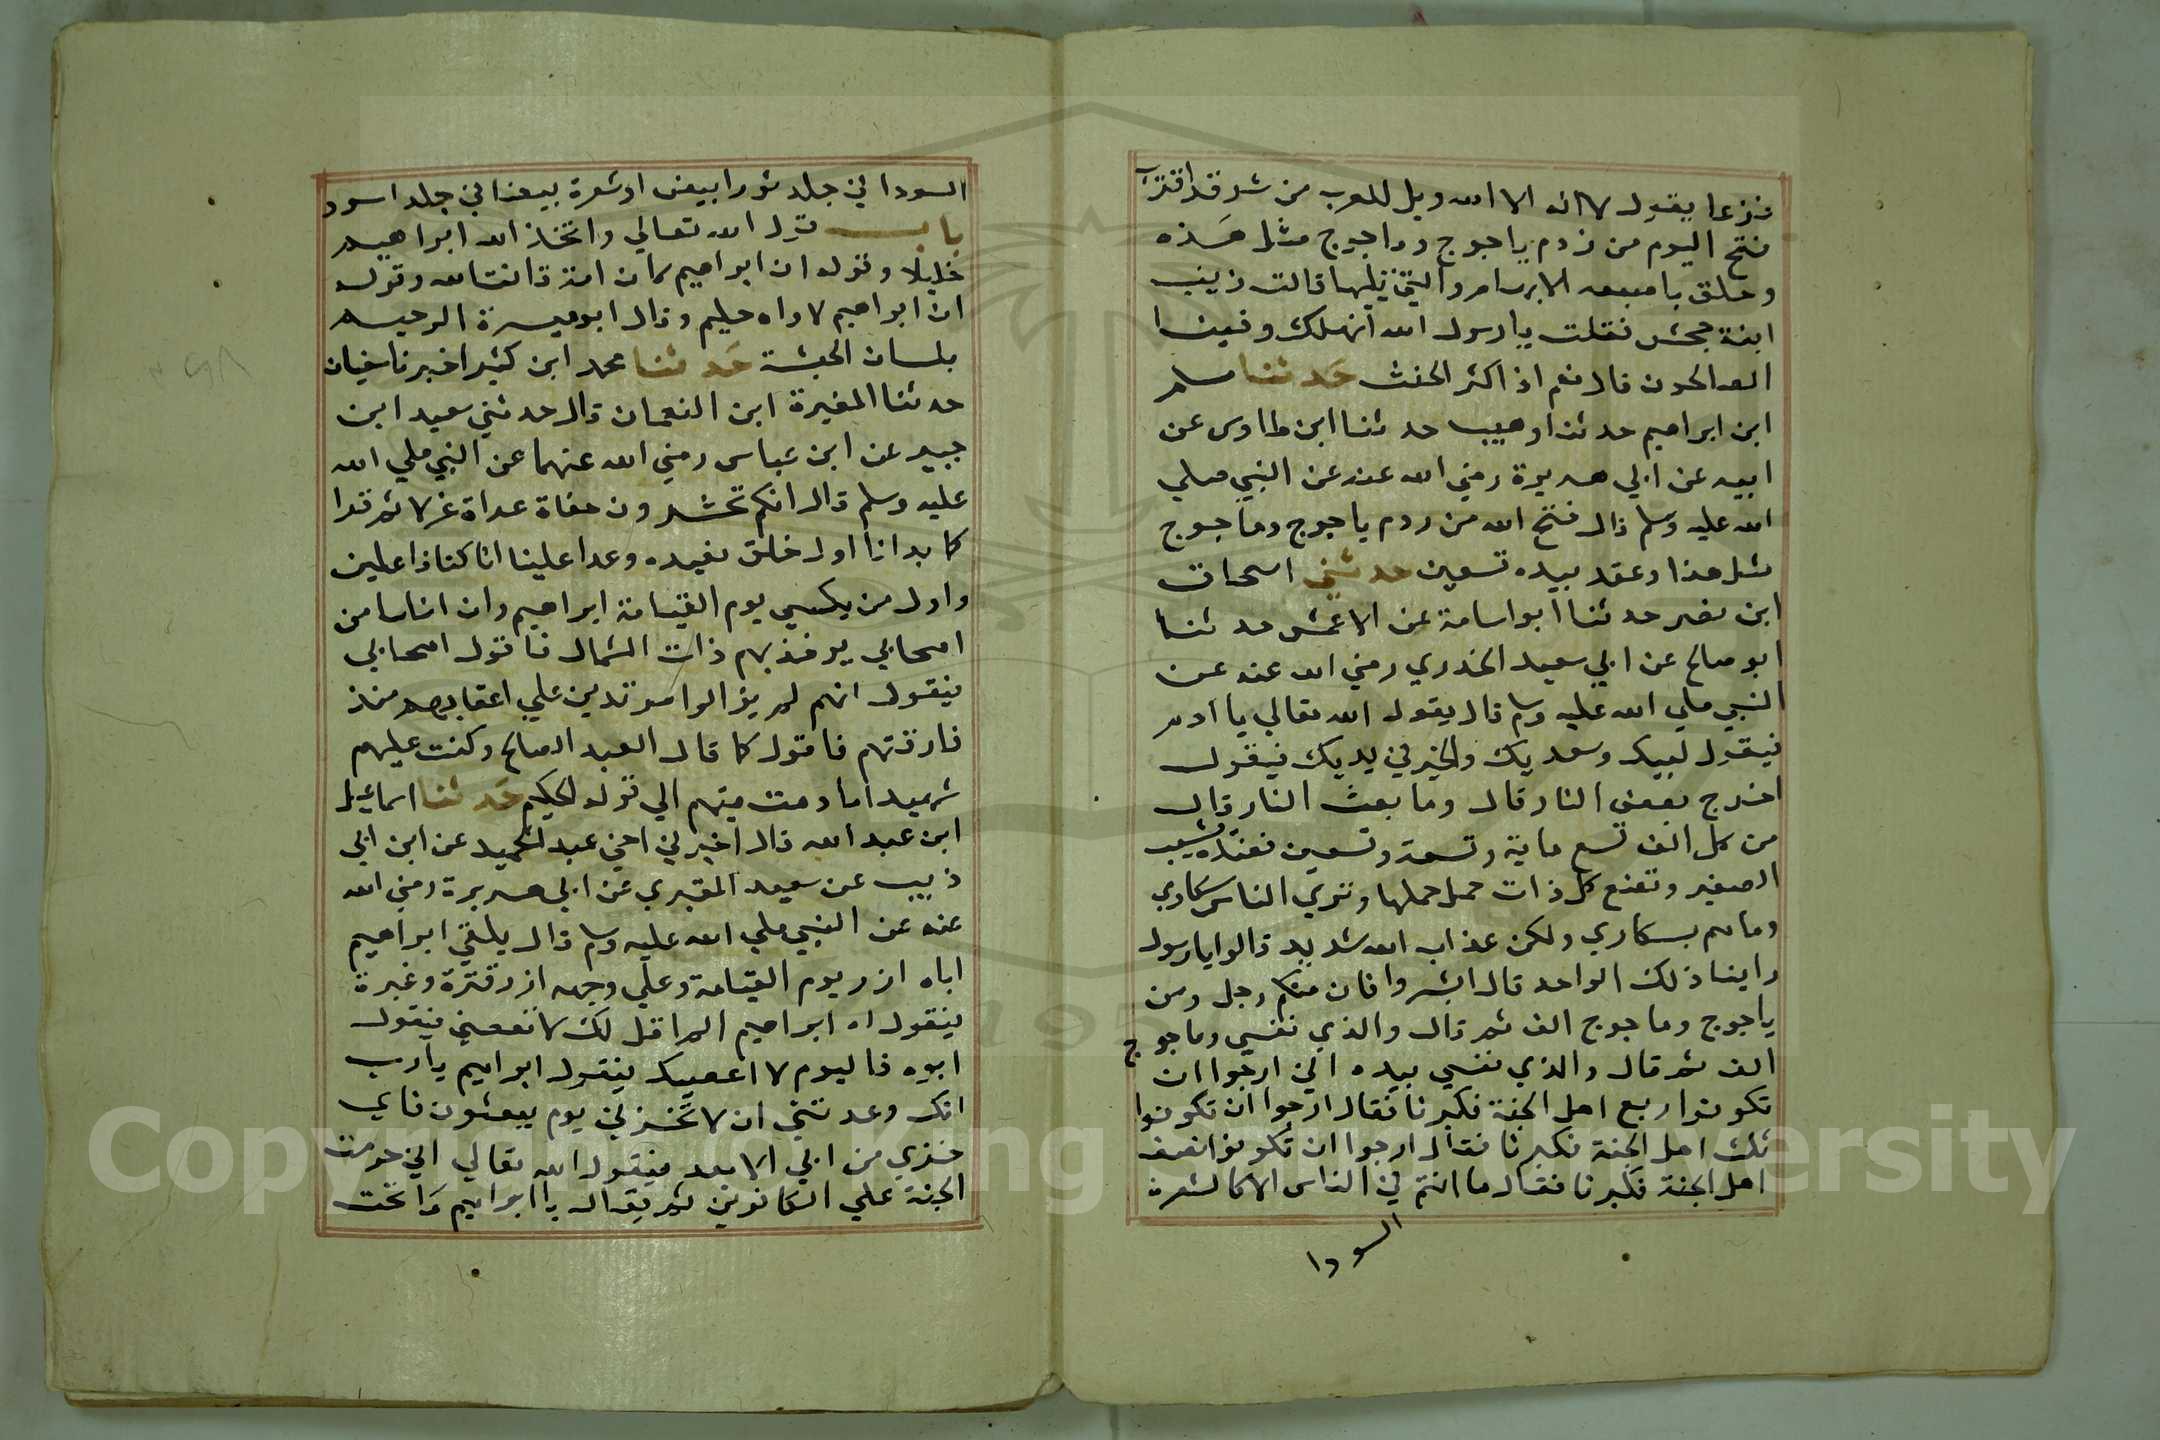 فزعا يقول لا اله الا الله ويل للعرب من شر قد اقترب
فتح اليوم من ردم ياجوج وماجوج مثل هذه
وحلق باصبعه الابهام والتي تليها قالت زينب
ابنة جحش فقلت يا رسول الله انهلك وفينا
الصالحون قال نعم اذا كثر الخبث حدثنا مسلم
ابن ابراهيم حدثنا وهيب حدثنا ابن طاوس عن
ابيه عن ابي هريرة رضي الله عنه عن النبي صلي
الله عليه وسلم قال فتح الله من ردم ياجوج وماجوج
مثل هذا وعقد بيده تسعين حدثني اسحاق
ابن نصر حدثنا ابو اسامة عن الاعمش حدثنا
ابو صالح عن ابي سعيد الخدري رضي الله عنه عن
النبي صلي الله عليه وسلم قال يقول الله تعالي يا ادم
فيقول لبيك وسعديك والخير في يديك فيقول
اخرج بعض النار قال وما بعث النار قال
من كل الف تسع ماية وتسعة وتسعين فعنده يشيب
الصغير وتضع كل ذات حمل حملها وتري الناس سكاري
وما هم بسكاري ولكن عذاب الله شديد قالوا يا رسول
راينا ذلك الواحد قال ابشروا فان منكم رجل ومن
ياجوج وماجوج الف ثم قال والذي نفسي وماجوج
الف ثم قال والذي نفسي بيده اني ارجوا ان
تكونوا ربع اهل الجنة فكبرنا فقال ارجوا ان تكونوا
ثلث اهل الجنة فكبرنا فقال ارجوا ان تكونوا نصف
اهل الجنة فكبرنا فقال ما انتم في الناس الا كالشعرة
السودا
السودا في جلد ثور ابيض او شعرة بيضا في جلد اسود
باب قول الله تعالي واتخذ الله ابراهيم
خليلا وقوله ان ابراهيم كان امة قانتا لله وقوله
ان ابراهيم لاواه حليم وقال ابو ميسرة الرحيم
بلسان الحبشة حدثنا محمد ابن كثير اخبرنا سفيان
حدثنا المغيرة ابن النعمان قال حدثني سعيد ابن
جبير عن ابن عباس رضي الله عنهما عن النبي صلي الله
عليه وسلم قال انكم تحشرون حفاة عراة غرلا ثم قرا
كما بدانا اول خلق نعيده وعدا علينا انا كنا فاعلين
واول من يكسي يوم القيامة ابراهيم وان اناسا من
اصحابي يوخذ بهم ذات الشمال فاقول اصحابي
فيقول انهم لم يزالوا مرتدين علي اعقابهم منذ
فارقتهم فاقول كما قال العبد الصالح وكنت عليهم
شهيدا ما دمت فيهم الي قوله الحكيم حدثنا اسماعيل
ابن عبد الله قال اخبرني اخي عبد الحميد عن ابن ابي
ذيب عن سعيد المقبري عن ابي هريرة رضي الله
عنه عن النبي صلي الله عليه وسلم قال يلقي ابراهيم
اباه ازر يوم القيامة وعلي وجه ازر قترة وغبرة
فيقول له ابراهيم الم اقل لك لا تعصني فيقول
ابوه فاليوم لا اعصيك فيقول ابراهيم يا رب
انك وعدتني ان لا تخزني يوم يبعثون فاي
خزي من ابي الابعد فيقول الله تعالي اني حرمت
الجنة علي الكافرين ثم يقال يا ابراهيم ما تحت
Copyright © King Saud University